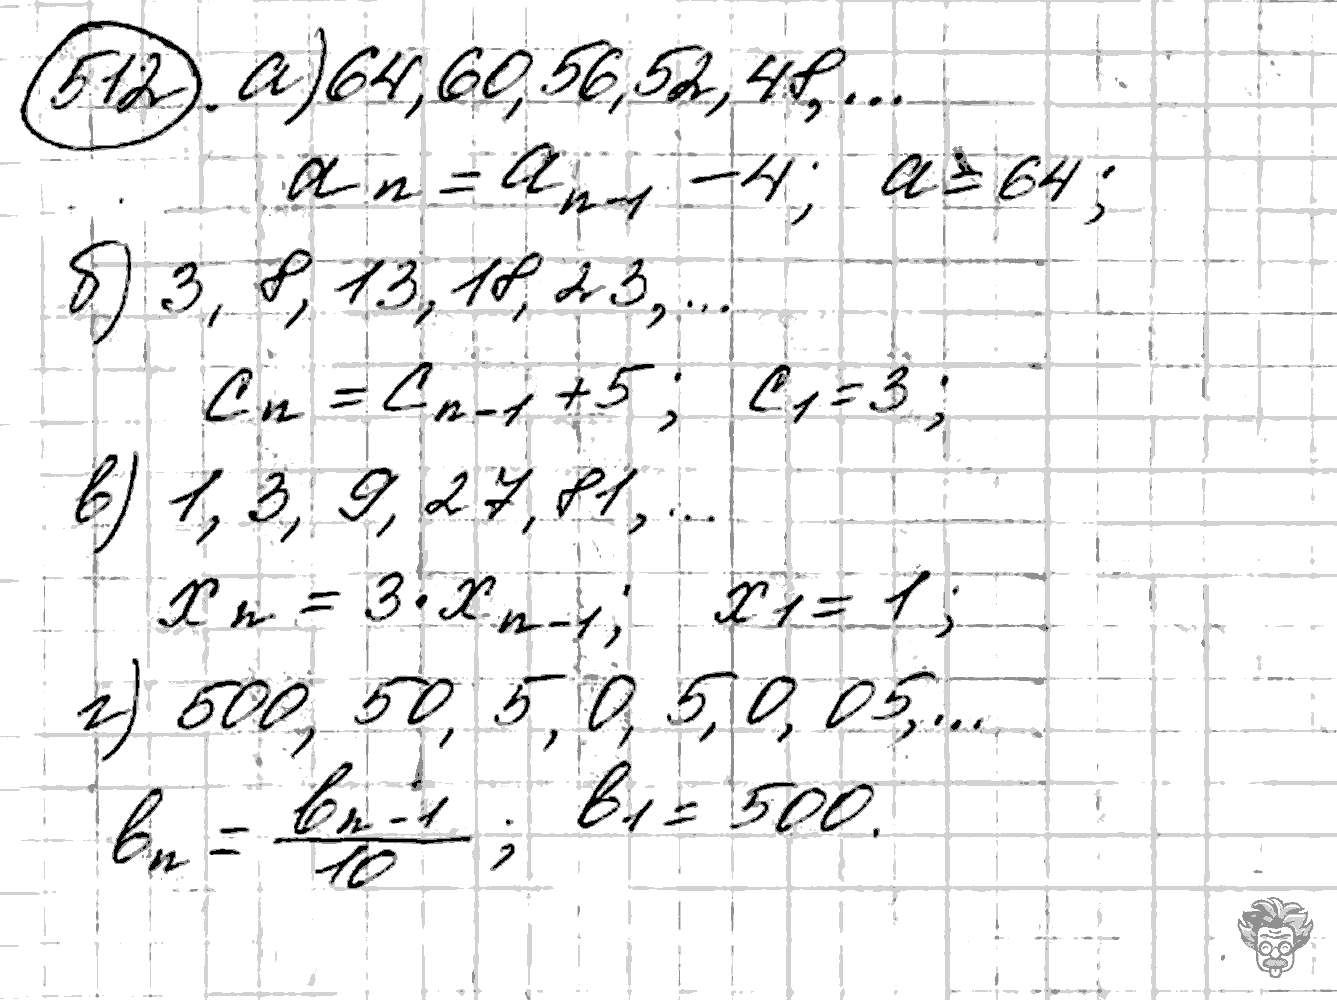 512. а) 64, 60, 56, 52, 48, ...
aₙ = aₙ₋₁ − 4; a ≥ 64;
б) 3, 8, 13, 18, 23, ...
cₙ = cₙ₋₁ + 5; c₁ = 3;
в) 1, 3, 9, 27, 81, ...
xₙ = 3 · xₙ₋₁; x₁ = 1;
г) 500, 50, 5, 0,5, 0,05, ...
bₙ = bₙ₋₁ / 10; b₁ = 500.